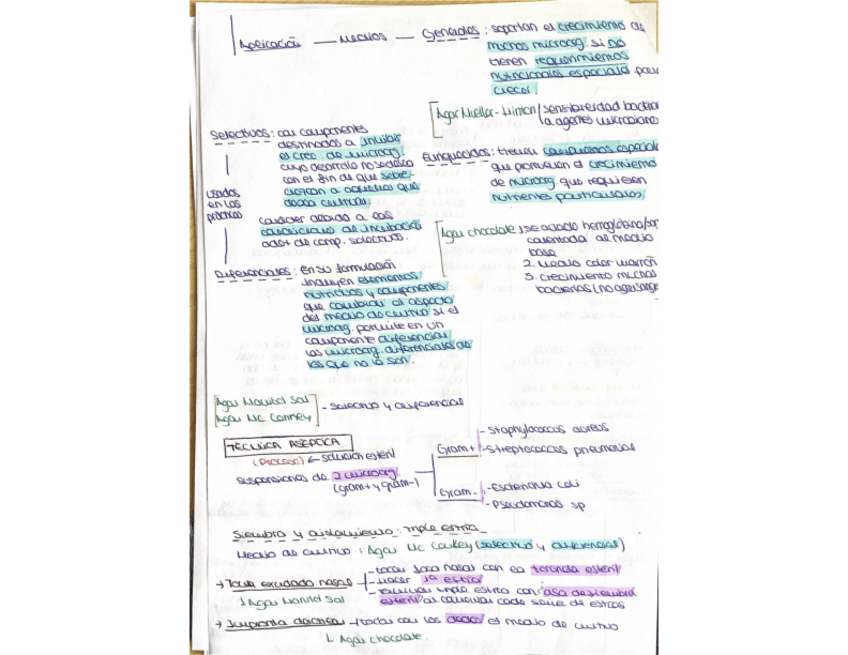 Aplicación — Medios — Generales : soportan el crecimiento de
muchos microorg. si no
tienen requerimientos
nutricionales especiales para
crecer.
Agar Mueller-Hinton / sensibilidad bacterian
a agentes microbiano
Selectivos: con componentes
destinados a inhibir
el crec. de microorg.
cuyo desarrollo no se desea
con el fin de que sobre-
crezcan a aquellos que
desea cultivar.
carácter debido a las
condiciones de incubación
adot de comp. selectivos.
usados
en las
prácticas
Enriquecidos: tienen compuestos especial
que promueven el crecimiento
de microorg que requieren
nutrientes particulares.
Agar chocolate 1 se añade hemoglobina/san
calentada al medio
base
2. Medio color marrón
3. crecimiento muchas
bacterias (no agar sangre
Diferenciales : en su formulación
incluyen elementos
nutritivos y componentes
que cambian el aspecto
del medio de cultivo si el
microorg. permite en un
componente diferenciar
los microorg. diferenciales de
los que no lo son.
Agar Manitol Sal
Agar Mc Conkey
- selectivo y diferencial
TÉCNICA ASÉPTICA
(Proceso) ← solución estéril
suspensiones de 2 microorg.
(gram+ y gram-)
Gram+ - Staphylococcus aureus
- Streptococcus pneumoniae
Gram- - Escherichia coli
- Pseudomonas sp
Siembra y aislamiento : Triple estría
Medio de cultivo : Agar Mc Conkey (selectivo y diferencial)
→ Toma exudado nasal
- tocar fosa nasal con la torunda estéril
- Hacer 1ª estría
- realizar triple estría con asa desechable
estéril al cambiar cada serie de estrías
↓ Agar Manitol Sal
→ Impronta → todas con los dedos el medio de cultivo
↳ Agar chocolate.